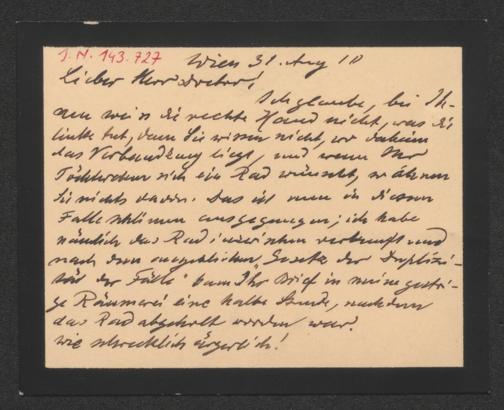 J.N. 143.727
Wien 31. Aug 10
Lieber Herr Doctor!
Ich glaube, bei Ih-
nen weiss die rechte Hand nicht, was die
linke tut, denn Sie wissen nicht, wo daheim
das Verbandzeug liegt, und wenn Ihr
Töchterchen sich ein Rad wünscht, so ahnen
Sie nichts davon. Das ist nun in diesem
Falle schlimm ausgegangen; ich habe
nämlich das Rad inzwischen verkauft und
nach dem unglücklichen "Gesetz der Duplizi-
tät der Fälle" kam Ihr Brief in meine gestri-
ge Räumerei eine halbe Stunde, nachdem
das Rad abgeholt worden war!
Wie schrecklich ärgerlich!